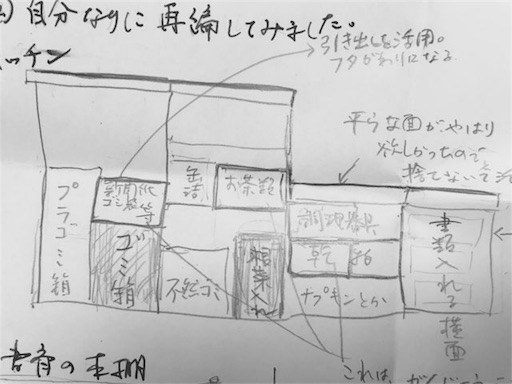 自分なりに再編してみました。
ッチン
引き出しを活用。
フタがわりになる
平らな面がやはり
欲しかったので
捨てないで
プラゴミ箱
新聞紙
ゴミ袋等
缶詰
お茶類
ゴミ箱
不燃ゴミ
調理器具
乾
ナプキンとか
書類入れる
横面
書斎の本棚
これは